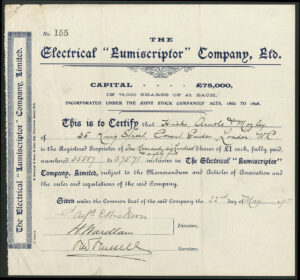 No. 155
THE
Electrical "Lumiscriptor" Company, Ltd.
CAPITAL £75,000,
IN 75,000 SHARES OF £1 EACH.
INCORPORATED UNDER THE JOINT STOCK COMPANIES' ACTS, 1862 TO 1898.
This is to Certify that Arnold &
35 King Street Covent Garden London W.C.
is the Registered Proprietor of One thousand Shares of £1 each, fully paid,
numbered inclusive in The Electrical "Lumiscriptor"
Company, Limited, subject to the Memorandum and Articles of Association and
the rules and regulations of the said Company.
Given under the Common Seal of the said Company, this 22nd day of May
Directors.
H. Wardlam
Russell
Secretary.
The Electrical "Lumiscriptor" Company, Limited.